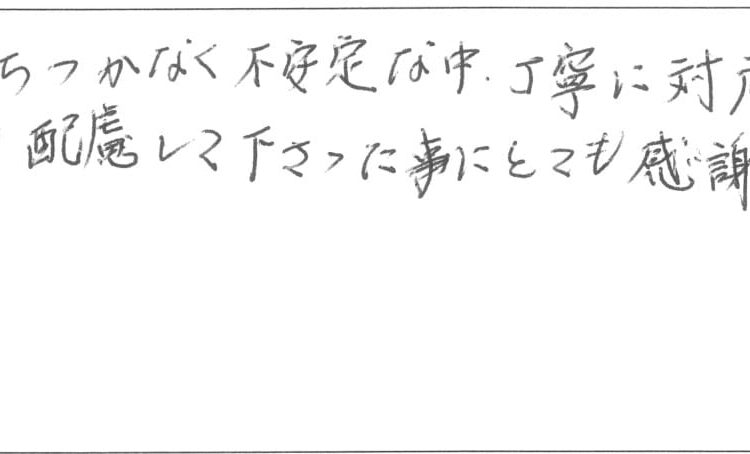 ちつかなく不安定な中、丁寧に対応
配慮して下さった事にとても感謝